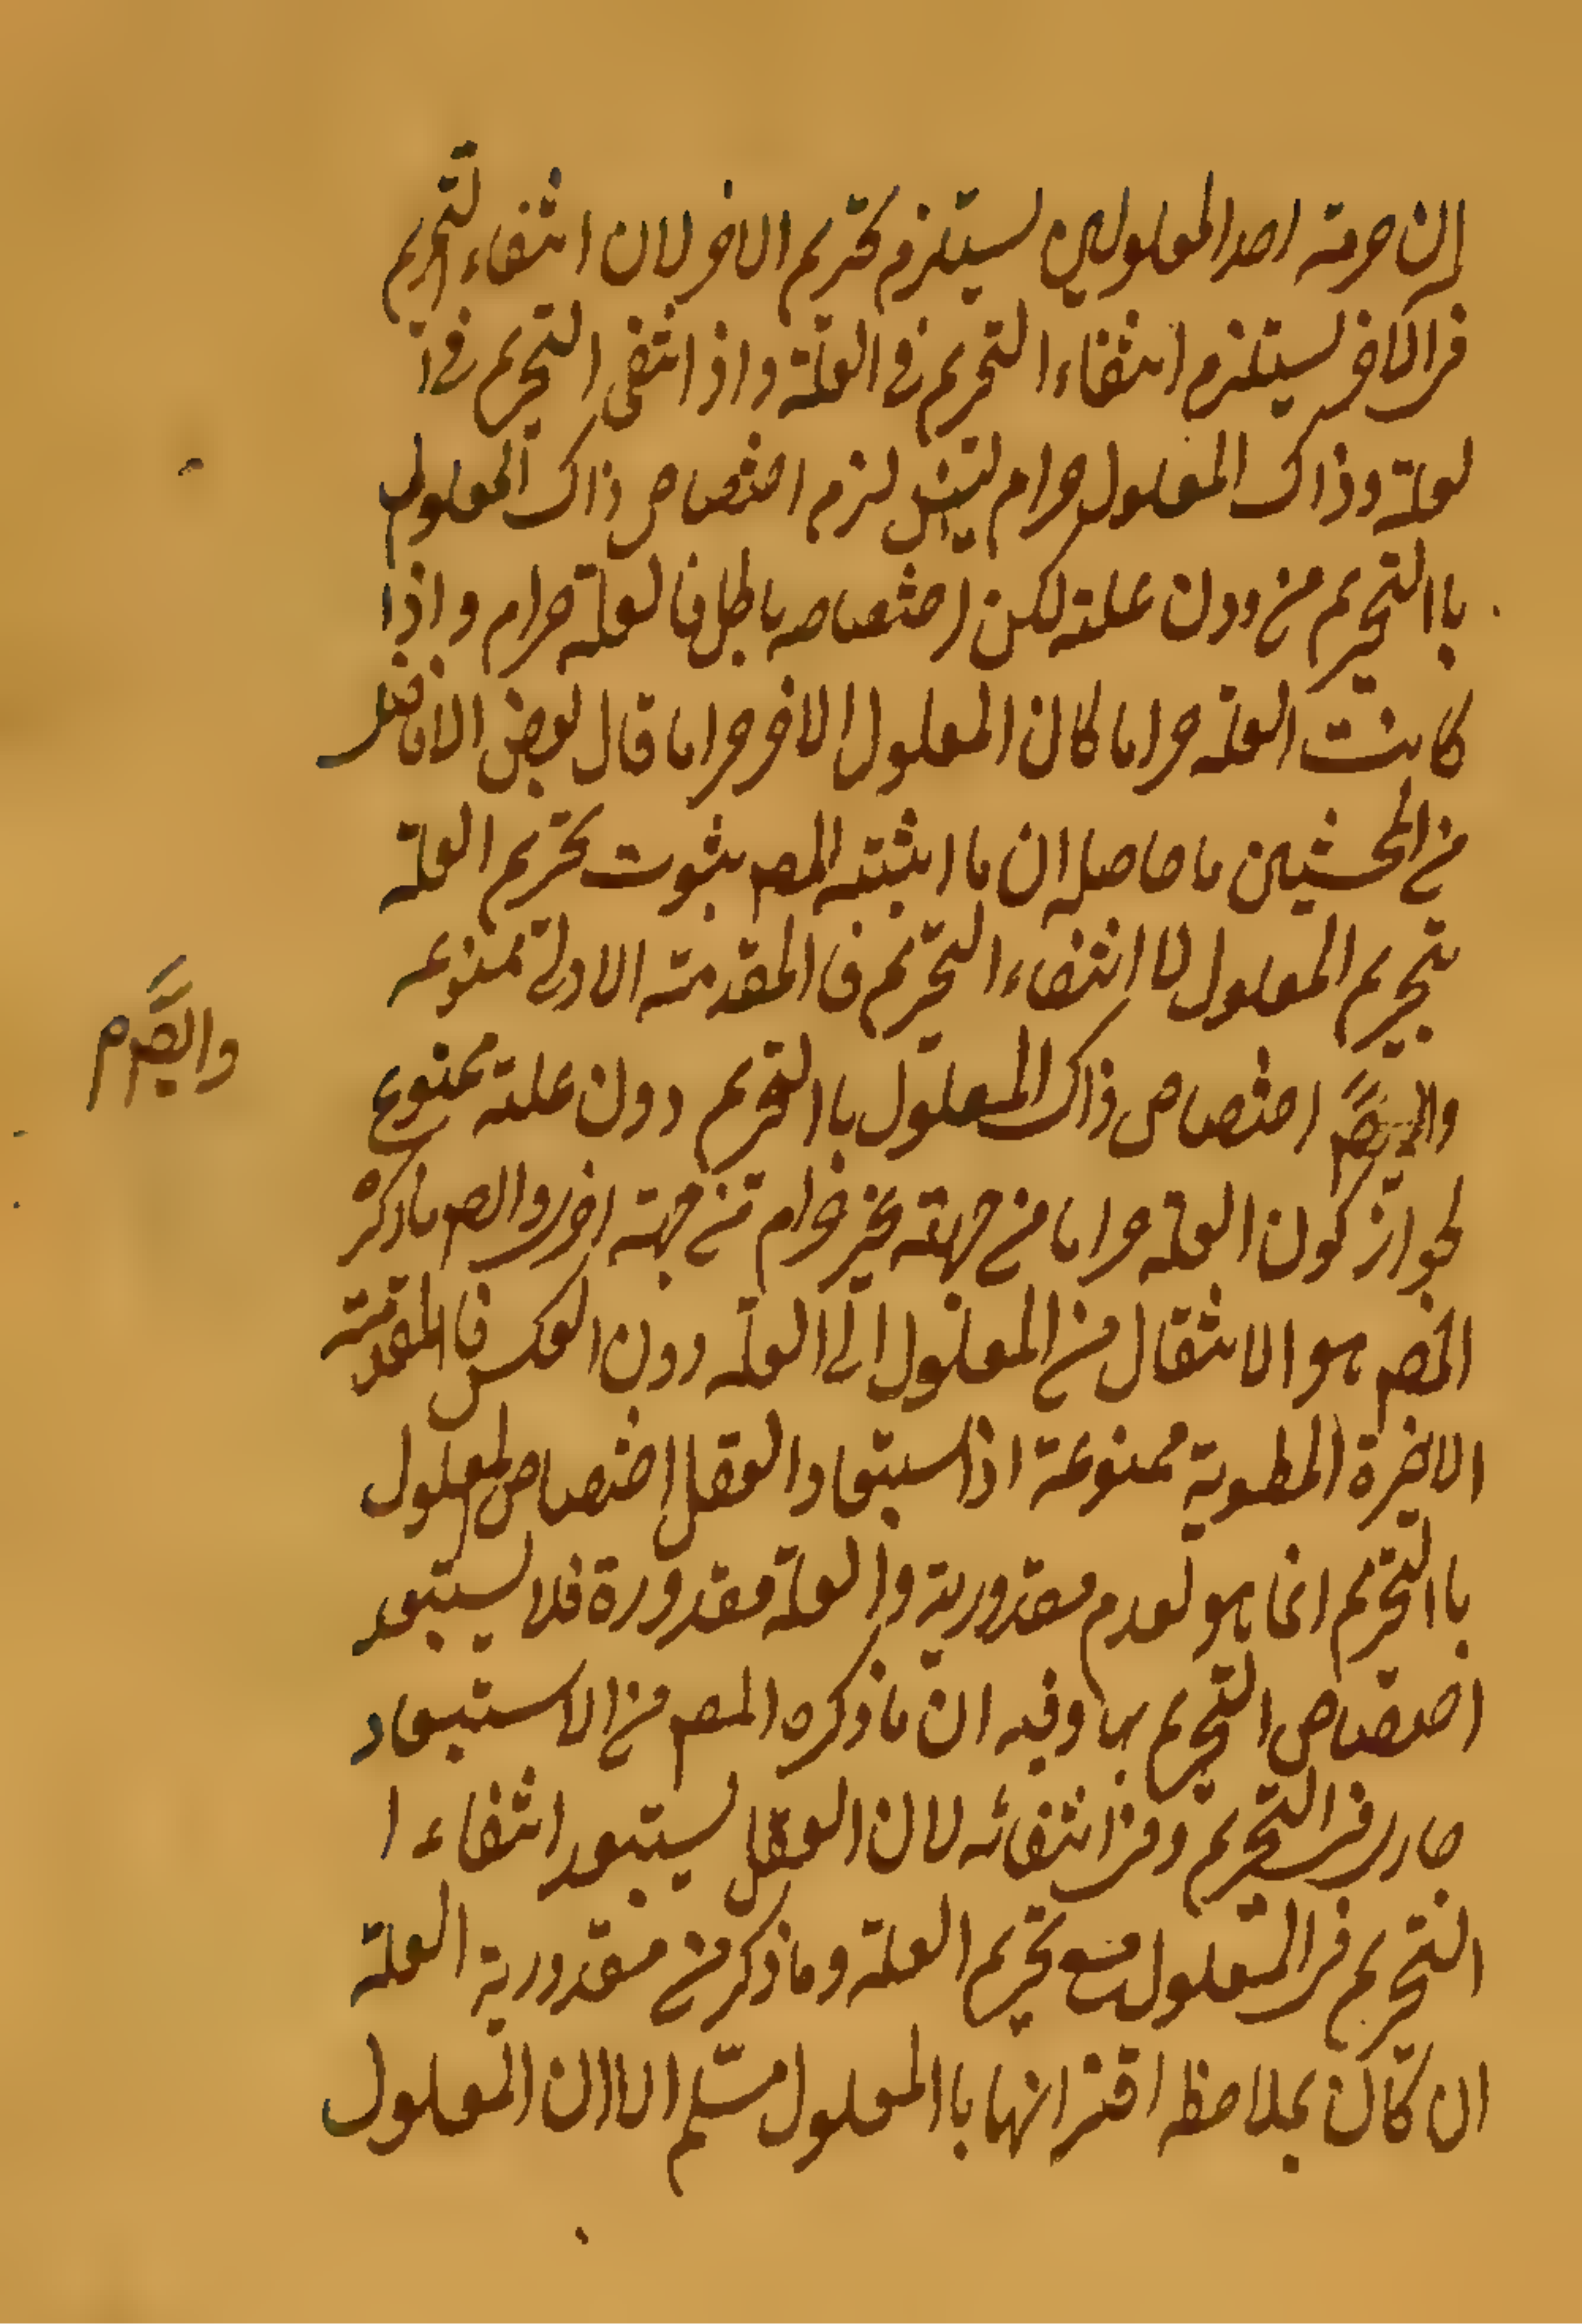 ان حرمة احد المعلولين يستلزم تحريم الاخر لان انتفاء التحريم
فى الاخر يستلزم انتفاء التحريم فى العلة واذ انتفى التحريم فى ا
لعلة وذاك المعلول حرام لزم اختصاص ذاك المعلول
باالتحريم من دون علته لكن اختصاصه باطل فالعلة حرام واذا
كانت العلة حراما كان المعلول الاخر حراما قال بعض الافاضل
من المحشين ما حاصله ان ما اثبته المص بثبوت تحريم العلة
بتحريم المعلول لا انتفاء التحريم فالمقدمة الاولى ممنوعه
اختصاص ذاك المعلول باالتحريم دون علته ممنوع
لجواز كون العلة حراما من جهته غير حرام من جهة اخرى والمص ماذكره
المص هو الانتقال من المعلول الى العلة دون العكس فالمقدمة
الاخيرة المطوية ممنوعة اذ استبعاد العقل اختصاص المعلول
باالتحريم انما هو لعدم مقدورية والعلة مقدورة فلا يستبعد
اختصاص التحريم بها وفيه ان ماذكره المص من الاستبعاد
جار فى التحريم وفى انتفائه لان العقل يستبعد انتفاء ا
التحريم فى المعلول مع تحريم العلة وما ذكر من مقدورية العلة
ان كان بملاحظه اقترانها باالمعلول مسلم الا ان المعلول